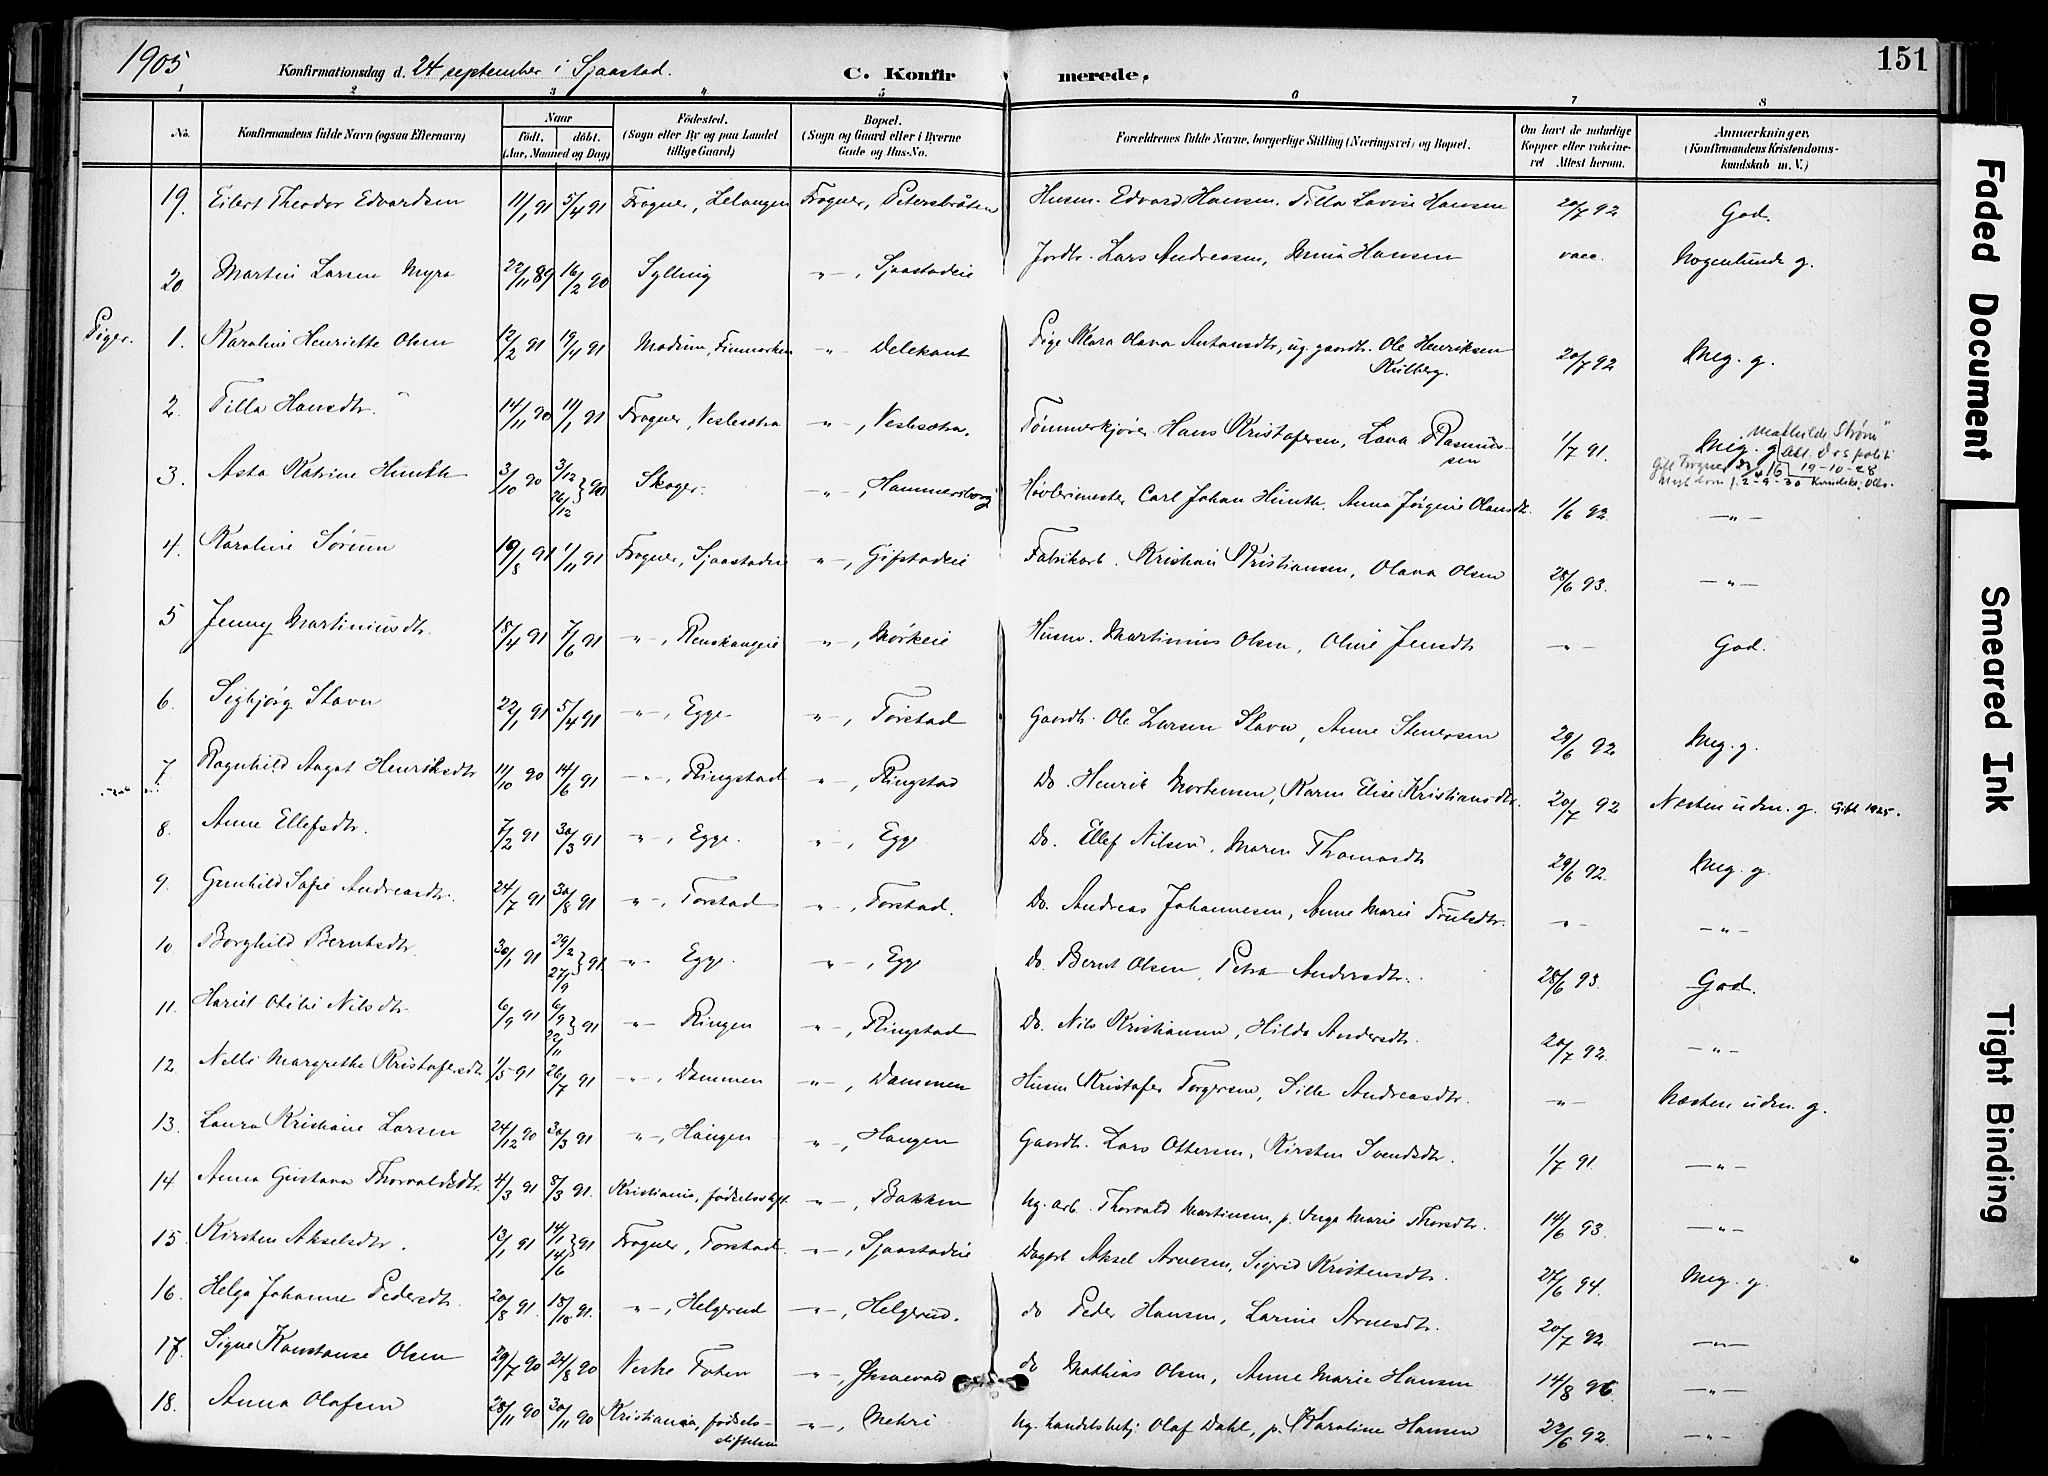 1905
Konfirmationsdag d. 24 september i Sjaastad.
C. Konfirmerede.
151
1 2 3 4 5 6 7 8
No.
Konfirmandens fulde Navn (ogsaa Efternavn)
Naar
født. døbt.
(Aar, Maaned og Dag)
Fødested.
(Sogn eller By og paa Landet
tillige Gaard)
Bopæl.
(Sogn og Gaard eller i Byerne
Gade og Hus-No.
Forældrenes fulde Navne, borgerlige Stilling (Næringsvei) og Bopæl.
Om havt de naturlige
Kopper eller vakcine-
ret Attest herom.
Anmærkninger.
(Konfirmandens Kristendoms-
kundskab m. V.)
19. Eilert Theodor Edvardsen 11/1 91 5/4 91 Frogner, Lelangen Frogner, Petersbråten Husm. Edvard Hansen, Tilla Lovise Hansen 20/7 92 God.
20 Martin Larsen Myra 22/11 89 16/2 90 Sylling -"-, Sjaastadeie Jordbr. Lars Andreasen, Anna Hansen vacc. Nogenlunde g.
Piger.
1. Karoline Henriette Olsen 12/2 91 19/4 91 Modum, Finmarken -"- Delekant Pige Klara Olava Antonsdtr, ug. gaardbr. Ole Henriksen
Kulberg. 20/7 92 Meg. g.
2. Tilla Hansdtr. 14/11 90 11/1 91 Frogner, Veslesætra -"-, Veslesætra. Tømmerkjører Hans Kristofersen, Lava Rasmus-
sen 1/7 91. Meg. g
"Mathilde Strøm"
Att. Oss politi
19-10-28
3. Asta Katrine Hunth 3/10 90 3/12 26/12 } 90 Skoger. -"-, Hammersborg Høvlerimester Carl Johan Hunth, Anna Jørgine Olausdtr. 1/6 92 -"-
4. Karoline Sørum 19/8 91 1/11 91 Frogner, Sjaastadeie -"-, Gifstadeie Fabrikarb. Kristian Kristiansen, Olava Olsen 28/6 93. -"-
5 Jenny Martiniusdtr. 18/4 91 7/6 91 -"-, Renskaugeie -"-, Mørkeie Husm. Martinius Olsen, Oline Jensdtr -"- God.
6. Sigbjørg Stavn 22/1 91 5/4 91 -"-, Egge -"-, Torstad Gaardbr. Ole Larsen Stavn, Anne Stenersen 29/6 92 Meg. g.
7 Ragnhild Aagot Henriksdtr 11/10 90 14/6 91 -"-, Ringstad -"-, Ringstad Do. Henrik Mortensen, Karen Elise Kristiansdtr. 20/7 92 Næsten udm. g. Gift 1925.
8. Anne Ellefsdtr. 7/2 91 30/3 91 -"-, Egge. -"-, Egge Do. Ellef Nilsen, Maren Thomasdtr 29/6 92. Meg. g.
9. Gunhild Sofie Andreasdtr. 24/7 91 30/8 91 -"-, Torstad -"-, Torstad. Do. Andreas Johannesen, Anne Marie Trulsdtr. -"- -"-
10 Borghild Berntsdtr. 30/1 91 29/2 27/9 } 91 -"- Egge. -"-, Egge Do. Bernt Olsen, Petra Andersdtr. 28/6 93. God.
11. Hariet Otilie Nilsdtr 6/9 91 6/9 22/11 } 91 -"- Ringen -"-, Ringstad Do. Nils Kristiansen, Hilda Andersdtr. 20/7 92. -"-
12. Nelli Margrethe Kristofersdtr 1/5 91 26/7 91 -"-, Dammen -"-, Dammen Husm Kristofer Torgersen, Sille Andreasdtr. -"- Næsten udm. g.
13. Laura Kristiane Larsen 24/12 90 30/3 91 -"-, Haugen -"-, Haugen Gaardbr. Lars Ottersen, Kirsten Svendsdtr. 1/7 91. -"-
14 Anna Gustava Thorvaldsdtr. 4/3 91 8/3 91. Kristiania, fødselsstift. -"-, Bakken Ug. arb. Thorvald Martinsen, p. Inga Marie Thorsdtr. 14/6 93. -"-
15. Kirsten Akselsdtr. 13/1 91 14/1 14/6 } 91 Frogner, Torstad. -"-, Sjaastadeie Dagarb Aksel Arnesen, Sigrid Kristensdtr. 27/6 94. Meg. g.
16. Helga Johanne Pedersdtr. 20/8 91. 18/10 91. -"-, Helgerud -"-, Helgerud. do Peder Hansen, Larine Arnesdtr. 20/7 92. -"-
17. Signe Konstanse Olsen 29/7 90 24/8 90 Vestre Toten -"-, do Mathias Olsen, Anne Marie Hansen 14/8 96 -"-
18. Anna Olafsen 28/11 90 30/11 90 Kristiania, fødsels-
stiftelsen -"-, Mehri Ug. handelsbetj. Olaf Dahl, p. Karoline Hansen 22/6 92. -"-
Faded Document
Smeared Ink
Tight Binding